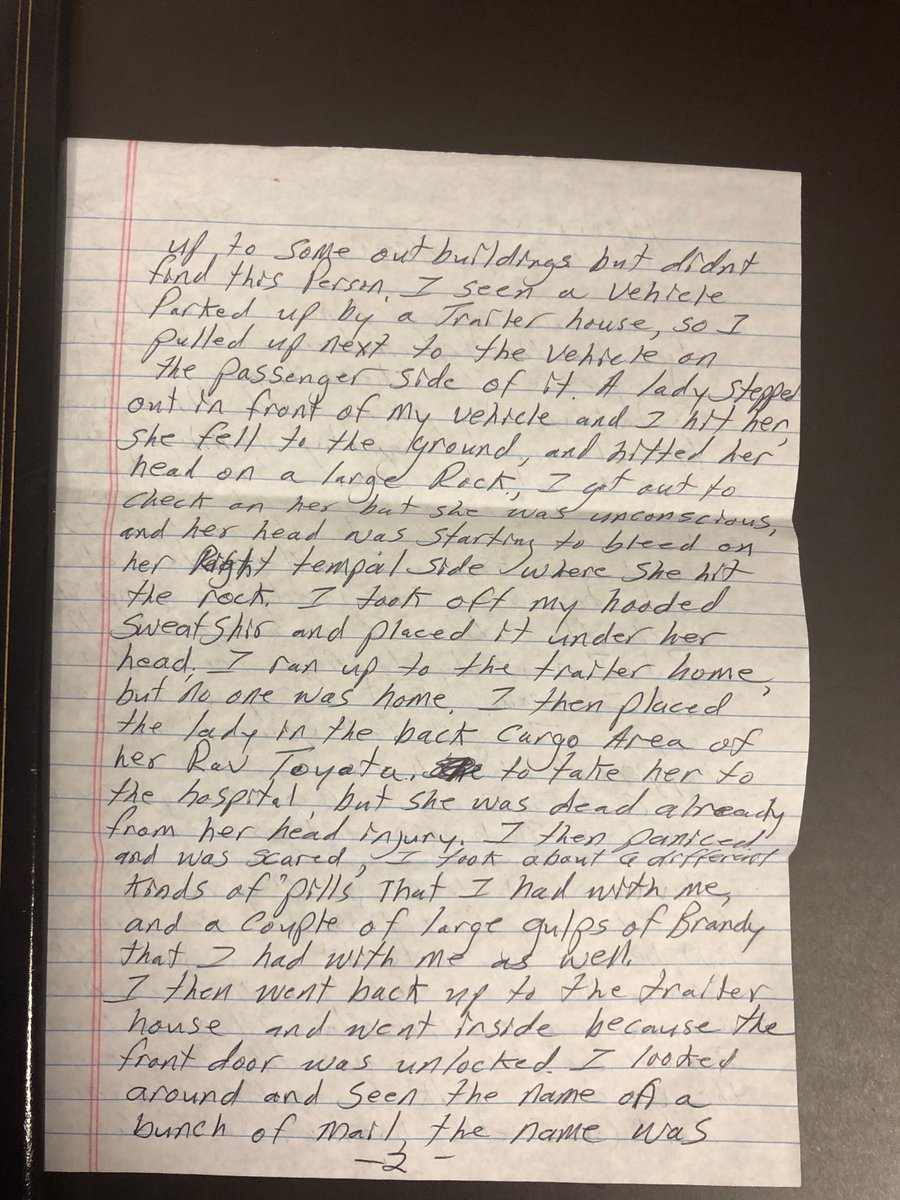 up to some outbuildings but didnt
find this Person. I seen a vehicle
Parked up by a Trailer house, so I
pulled up next to the vehicle on
the passenger side of it. A lady stepped
out in front of my vehicle and I hit her,
she fell to the ground, and hitted her
head on a large Rock, I got out to
check on her but she was unconscious,
and her head was starting to bleed on
her Right tempal side where she hit
the rock. I took off my hooded
sweatshir and placed it under her
head. I ran up to the trailer home,
but no one was home. I then placed
the lady in the back Cargo Area of
her Rav Toyota. to take her to
the hospital, but she was dead already
from her head injury. I then paniced
and was scared, I took about different
kinds of "pills" That I had with me,
and a couple of large gulps of Brandy
that I had with me as well.
I then went back up to the trailer
house and went inside because the
front door was unlocked. I looked
around and seen the name on a
bunch of mail, the name was
-2-